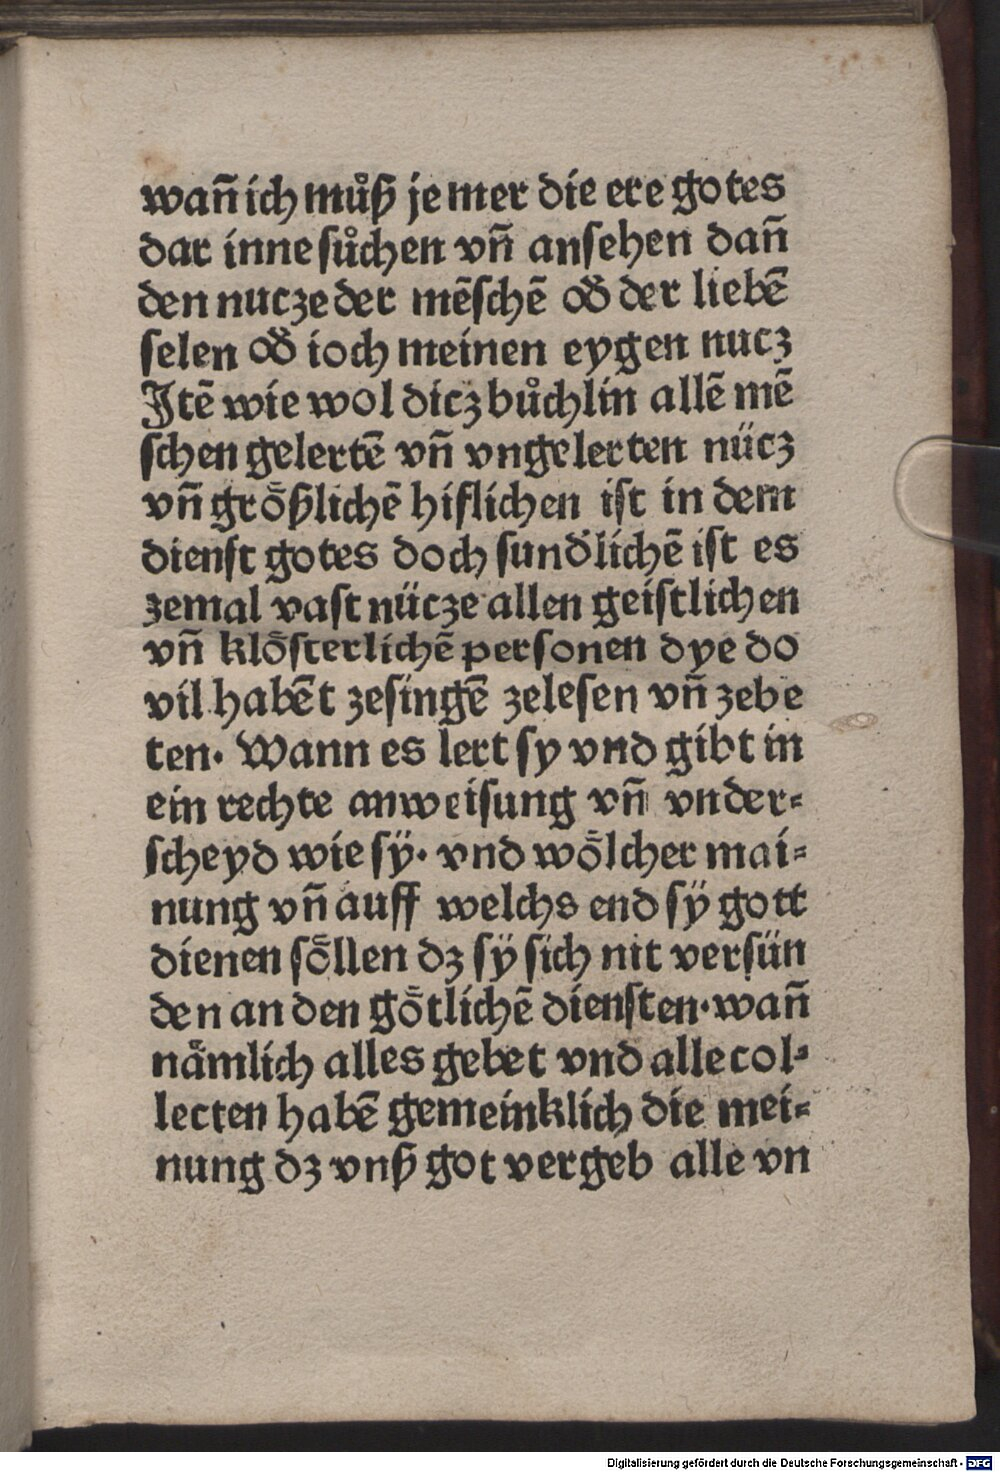 wañ ich můß je mer die ere gotes
dar inne sůchen vñ ansehen dañ
den nucze der mēschē od̕ der liebē
selen od̕ ioch meinen eygen nucz
Jtē wie wol dicz bůchlin allē mē
schen gelertē vñ vngelerten nücz
vñ grȫßlichē hiflichen ist in dem
dienst gotes doch sund̕lichē ist es
zemal vast nücze allen geistlichen
vñ klȫsterlichē personen dye do
vil habēt zesingē zelesen vñ zebe
ten. Wann es lert sy vnd gibt in
ein rechte anweisung vñ vnder=
scheyd wie sÿ. vnd wȫlcher mai=
nung vñ auff welchs end sÿ gott
dienen sȫllen dz sÿ sich nit versün
den an den gȫtlichē diensten. wañ
nämlich alles gebet vnd alle col=
lecten habē gemeinklich die mei=
nung dz vnß got vergeb alle vn
Digitalisierung gefördert durch die Deutsche Forschungsgemeinschaft - DFG